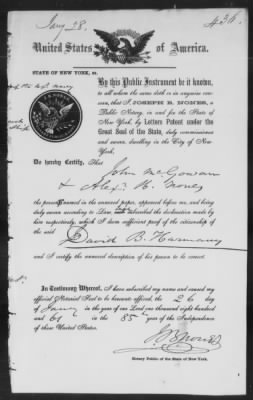 Jany 28.
United States of America.
STATE OF NEW YORK, ss.
By this Public Instrument be it known,
to all whom the same doth or in anywise con-
cern, that I, JOSEPH B. NONES, a
Public Notary, in and for the State of
New York, by Letters Patent under the
Great Seal of the State, duly commissioned
and sworn, dwelling in the City of New
York,
Do hereby Certify, That
John McGowan
& Alexr. H. Nones
the persons named in the annexed paper, appeared before me, and being
duly sworn according to Law, subscribed the declaration made by
here respectively, which I deem sufficient proof of the citizenship of
the said
David B. Harmany
and I certify the annexed description of his person to be correct.
In Testimony Whereof, I have subscribed my name and caused my
official Notarial Seal to be hereunto affixed, the 26 day
of Jany in the year of our Lord one thousand eight hundred
and 61 in the 85th year of the Independence
of these United States.
J B Nones
Notary Public of the State of New York.